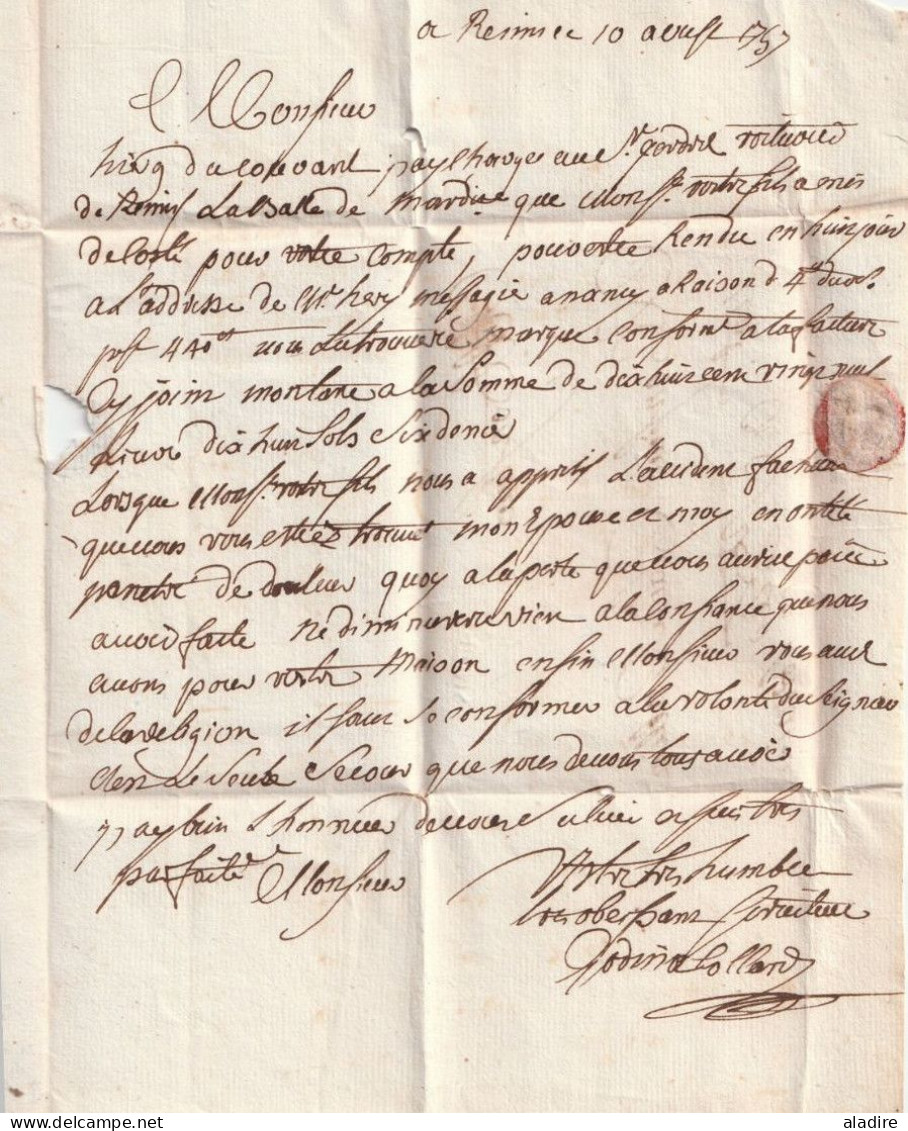 a Reims ce 10 aoust 1757
Monsieur
hier 9 du couvant jay charger au Sr voiturier
de Reims La Balle de mardise que Monsr. votre fils a mis
de Coste pour votre Compte, pour estre Rendu en huit jour
a L'addresse de Mr hery messagie a nancy a Raison de 4tt du %.
psst 440tt vous La trouveré marque conforme a la facture
Cy joint montant a la Somme de dixhuit cent vingt neuf
Livre dix huit Sols Six denié
Lorsque Monsr. votre fils nous a appris L'accident facheux
que vous vous estiez trouvé mon Epouse et moy en ont été
penetré de douleur quoy a la perte que vous aurié
avoir faite ne diminuera rien a la Confiance que nous
avons pour votre Maison enfin Monsieur vous avez
de la religion il faut se conformer a la volonté du Seigneur
C'est Le Seule Secour que nous devons tous avoir
jay bien L'honneur de vous Saluer et suis tres
parfaitet. Monsieur
Votre tres humble
tres obeissant Serviteur
Collard
aladire